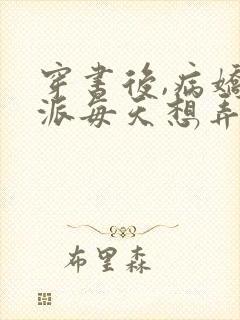 穿書後,病嬌
派每天想弄
布里森